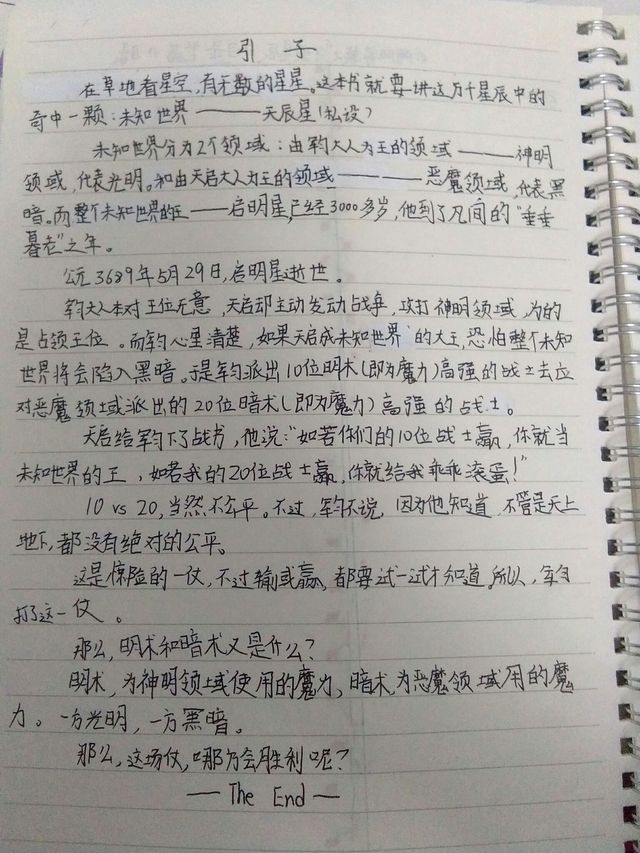 引子
在草地看星空,有无数的星星。这本书就要讲这万千星辰中的
奇中一颗:未知世界——天辰星(私设)
未知世界分为2个领域:由钧大人为王的领域——神明
领域,代表光明。和由天启大人为王的领域——恶魔领域,代表黑
暗。而整个未知世界的王——启明星,已经3000多岁,他到了凡间的“垂垂
暮老”之年。
公元3689年5月29日,启明星逝世。
钧大人本对王位无意,天启却主动发动战争,攻打神明领域,为的
是占领王位。而钧心里清楚,如果天启成未知世界的大王,恐怕整个未知
世界将会陷入黑暗。于是钧派出10位明术(即为魔力)高强的战士去应
对恶魔领域派出的20位暗术(即为魔力)高强的战士。
天启给钧下了战书,他说:“如若你们的10位战士赢,你就当
未知世界的王,如若我的20位战士赢,你就给我乖乖滚蛋!”
10 vs 20,当然不公平。不过,钧不说,因为他知道,不管是天上
地下,都没有绝对的公平。
这是惊险的一仗,不过输或赢,都要试一试才知道。所以,钧
打了这一仗。
那么,明术和暗术又是什么?
明术,为神明领域使用的魔力,暗术,为恶魔领域用的魔
力。一方光明,一方黑暗。
那么,这场仗,哪方会胜利呢?
—The End—